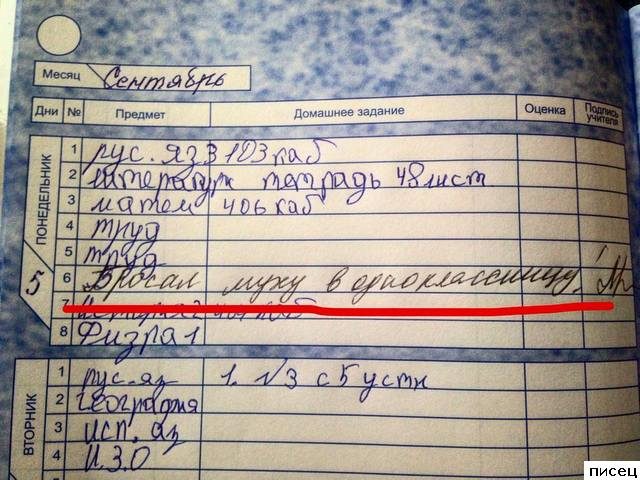 Месяц Сентябрь
Дни № Предмет Домашнее задание Оценка Подпись учителя
ПОНЕДЕЛЬНИК
5
1 рус. яз 3 103 каб
2 литература тетрадь 48 лист
3 матем 406 каб
4 труд
5 труд
6 Бросал муху в одноклассницу!
7 каб
8 Физра 1
ВТОРНИК
1 рус. яз 1. √3 с 5 устн
2 география
3 исп. яз
4 И.З.О
писец